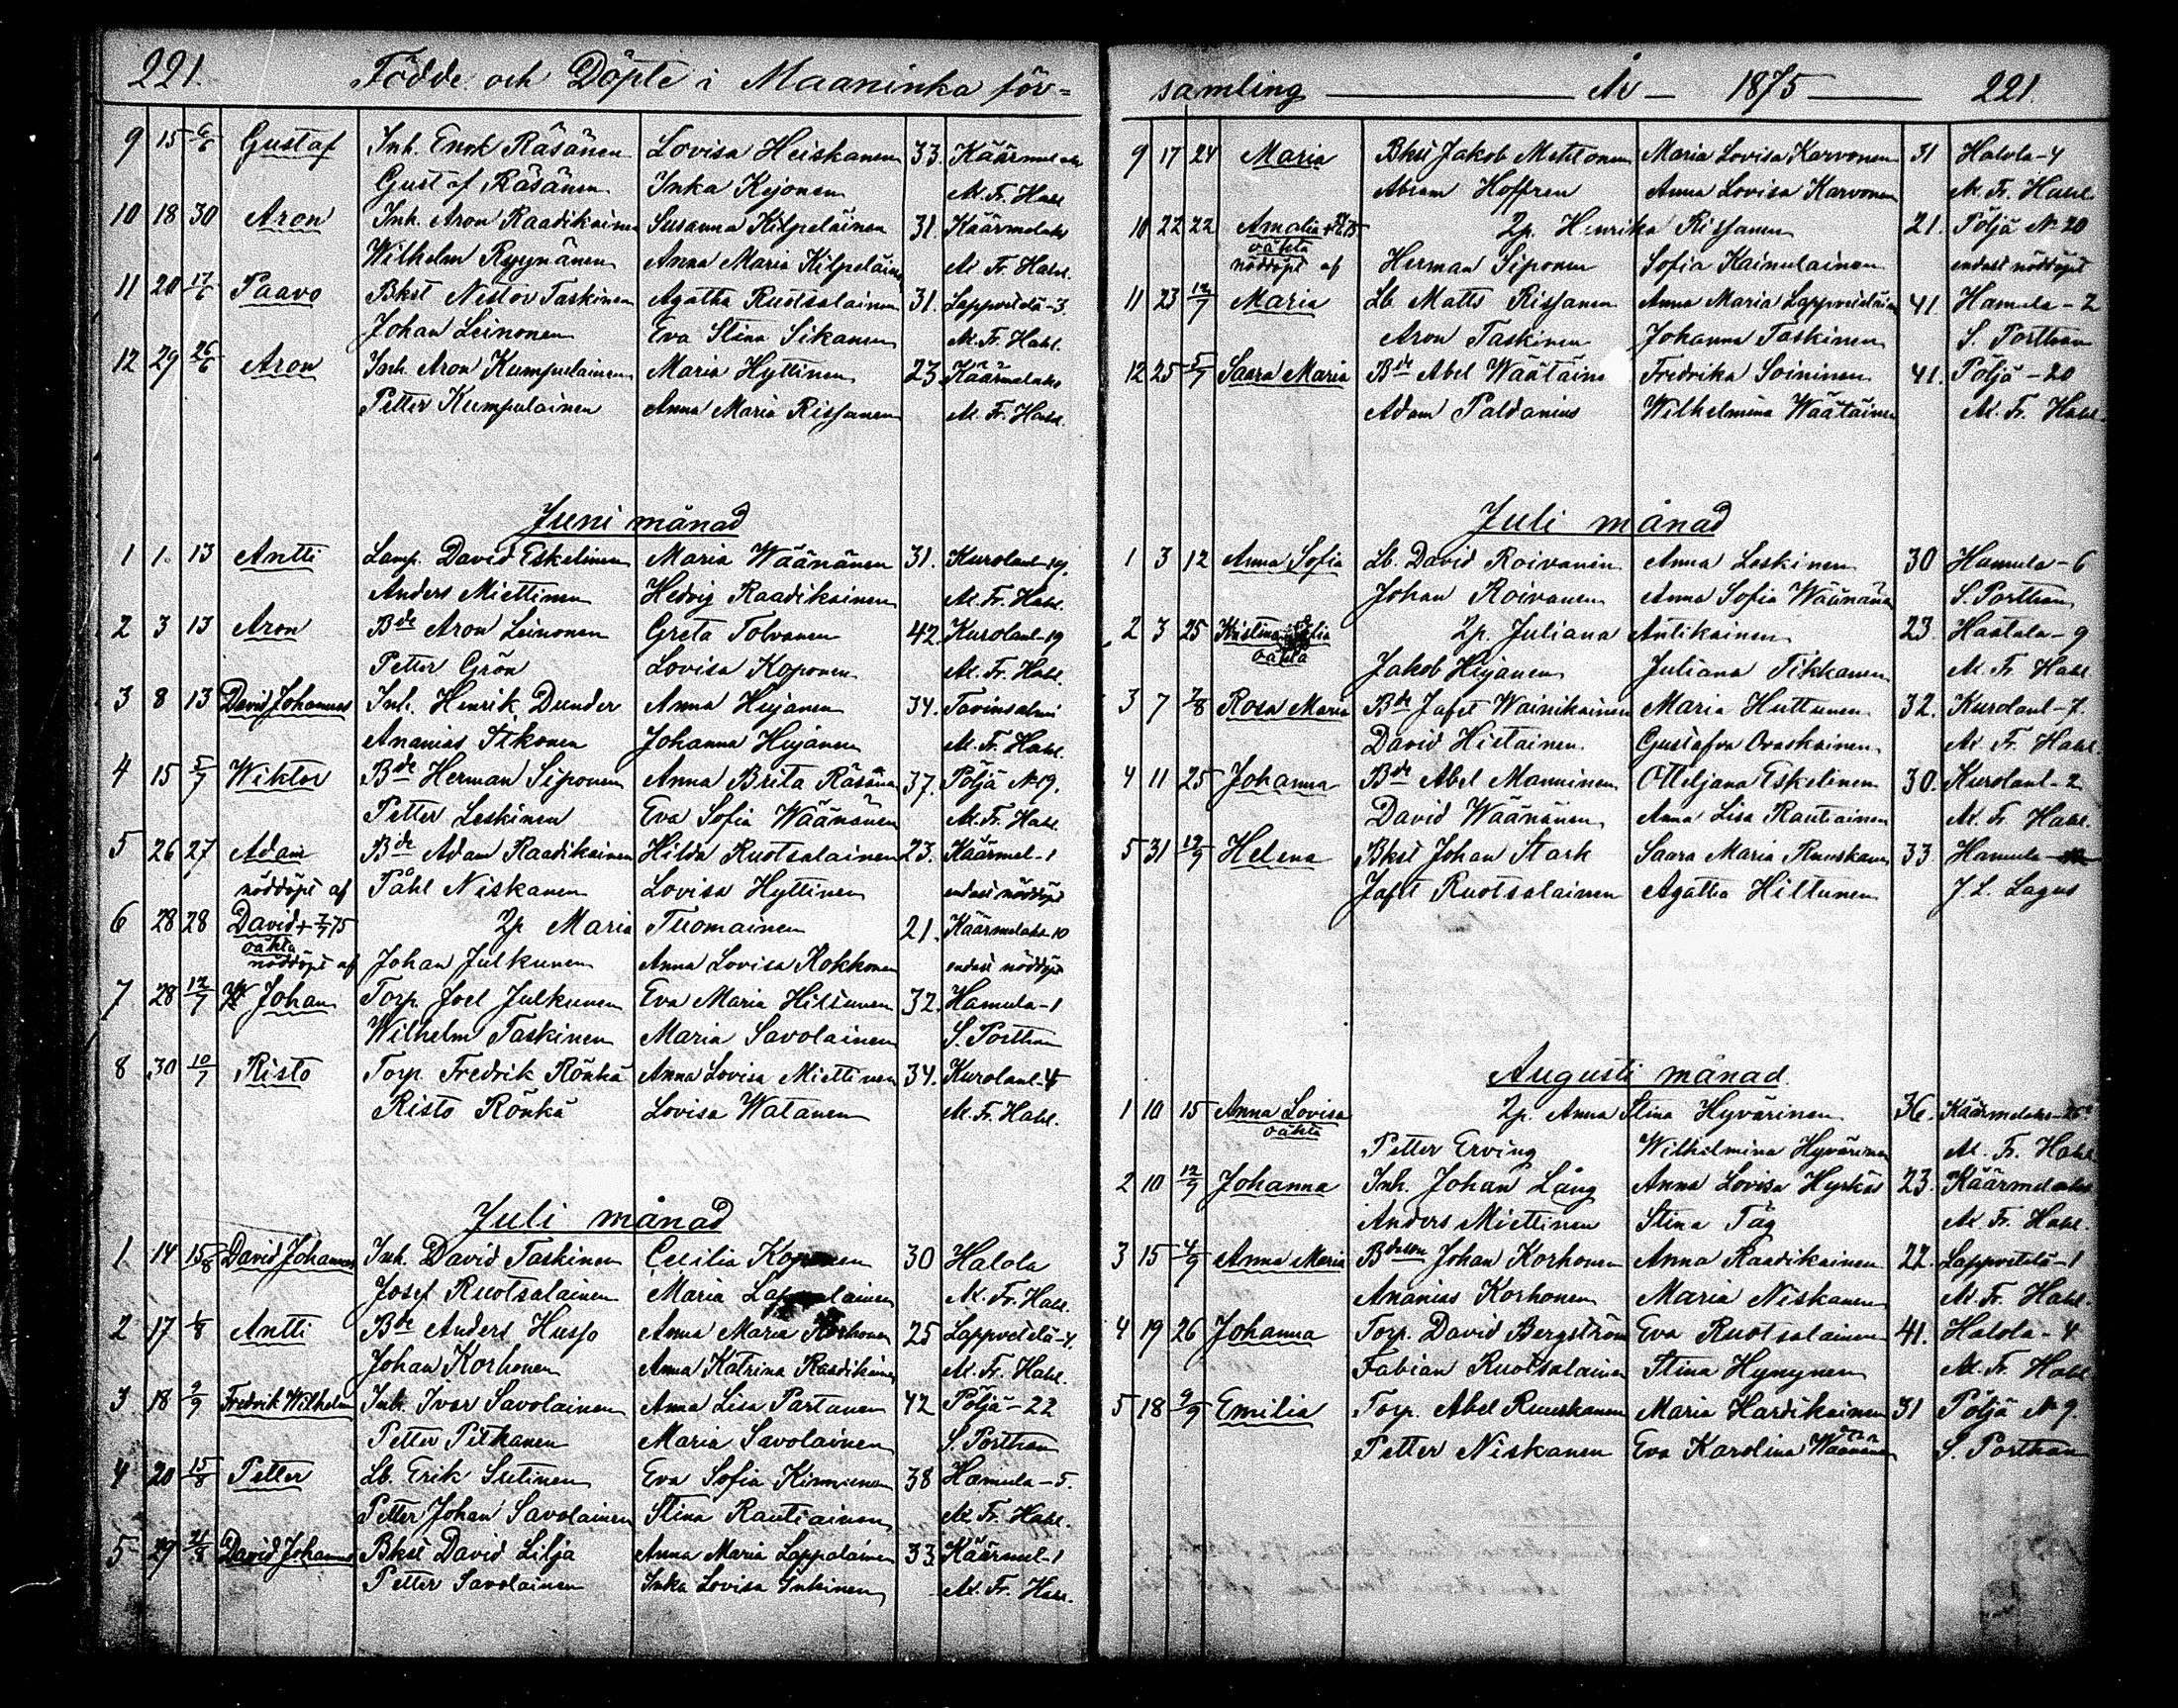 221. Födde och Döpte i Maaninka för=
9 15 6/6 Gustaf Inh. Enok Räsänen Lovisa Heiskanen 33. Käärmelaks
Gustaf Räsänen Inka Kejonen M. Fr. Hahl.
10 18 30 Aron Inh. Aron Raadikainen Susanna Kilpeläinen 31. Käärmelaks
Wilhelm Ryynänen Anna Maria Kilpeläinen M. Fr. Hahl.
11 20 17/6 Paavo Bkst Nestor Taskinen Agatha Ruotsalainen 31. Lappvetelä-3.
Johan Leinonen Eva Stina Sikanen M. Fr. Hahl.
12 29 26/6 Aron Inh. Aron Kumpulainen Maria Hyttinen 23 Käärmelaks
Petter Kumpulainen Anna Maria Rissanen M. Fr. Hahl.
Juni månad
1 1. 13 Antti Lamp. David Eskelinen Maria Wäänänen 31. Kurolanl-19.
Anders Miettinen Hedvig Raadikainen M. Fr. Hahl.
2 3 13 Aron Bde Aron Leinonen Greta Tolvanen 42. Kurolanl-19
Petter Grön Lovisa Koponen M. Fr. Hahl.
3 8 13 David Johannes Inh. Henrik Dunder Anna Hujanen 34. Tavinsalmi
Ananias Tikonen Johanna Hujanen M. Fr. Hahl.
4 15 5/7 Wiktor Bde Herman Siponen Anna Brita Räsänen 37. Pöljä No 19.
Petter Leskinen Eva Sofia Wäänänen M. Fr. Hahl.
5 26 27 Adam Bde Adam Raadikainen Hilda Ruotsalainen 23. Käärmel-1
nöddöpt af Påhl Niskanen Lovisa Hyttinen endast nöddöpt
6 28 28 David + 7/7 75 2p Maria Tuomainen 21. Käärmelaks-10
oäkta
nöddöpt af Johan Julkunen Anna Lovisa Kokkonen endast nöddöpt
7 28 12/7 Johan Torp. Joel Julkunen Eva Maria Hiltunen 32. Hamula-1
Wilhelm Taskinen Maria Savolainen S. Porthan
8 30 10/7 Risto Torp. Fredrik Rönkä Anna Lovisa Miettinen 34. Kurolanl-4
Risto Rönkä Lovisa Watanen M. Fr. Hahl.
Juli månad
1 14 15/8 David Johannes Inh. David Taskinen Cecilia Koponen 30 Halola
Josef Ruotsalainen Maria M. Fr. Hahl.
2 17 1/8 Antti Bde Anders Husso Anna Maria Korhonen 25 Lappvetelä-4.
Johan Korhonen Anna Katrina Raadikainen M. Fr. Hahl.
3 18 9/9 Fredrik Wilhelm Inh. Ivar Savolainen Anna Lisa Partanen 42 Pöljä-22
Petter Pitkänen Maria Savolainen S. Porthan
4 20 15/8 Petter Lb. Erik Sutinen Eva Sofia Kinnunen 38 Hamula-5.
Petter Johan Savolainen Stina Rautiainen M. Fr. Hahl.
5 29 21/8 David Johannes Bkst David Lilja Anna Maria Lappalainen 33 Käärmel-1
Petter Savolainen Inka Lovisa Inkinen M. Fr. Hahl.
samling År 1875 221.
9 17 24 Maria Bkst Jakob Mehtonen Maria Lovisa Karvonen 31 Halola-4
Abram Hoffren Anna Lovisa Karvonen M. Fr. Hahl.
10 22 22 Amalia 2p. Henrika Rissanen 21. Pöljä No 20
oäkta
nöddöpt af Herman Siponen Sofia Kainulainen endast nöddöpt
11 23 12/7 Maria Lb. Matts Rissanen Anna Maria Lappveteläinen 41. Hamula-2
Aron Taskinen Johanna Taskinen S. Porthan
12 25 5/7 Saara Maria Bde Abel Wäätäine Fredrika Soininen 41. Pöljä-20
Adam Paldanius Wilhelmina Wäätäinen M. Fr. Hahl.
Juli månad
1 3 12 Anna Sofia Lb. David Roivanen Anna Leskinen 30 Hamula-6
Johan Roivanen Anna Sofia Wäänänen S. Porthan
2 3 25 Kristina 2p. Juliana Antikainen 23. Haatala-9
oäkta Jakob Hujanen Juliana Tikkanen M. Fr. Hahl.
3 7 7/8 Rosa Maria Bde Jafet Wainikainen Maria Huttunen 32. Kurolanl-7.
David Hietainen Gustafva Ovaskainen M. Fr. Hahl.
4 11 25 Johanna Bde Abel Manninen Ottiljana Eskelinen 30. Kurolanl-2
David Wäänänen Anna Lisa Rautiainen M. Fr. Hahl.
5 31 12/9 Helena Bkst Johan Stark Saara Maria Ruuskanen 33 Hamula
Jafet Ruotsalainen Agatha Hiltunen J. L. Lagus
Augusti månad
1 10 15 Anna Lovisa 2p. Anna Stina Hyvärinen 36. Käärmelaks
oäkta
Petter Erving Wilhelmina Hyvärinen M. Fr. Hahl.
2 10 12/9 Johanna Inh. Johan Lång Anna Lovisa Hyrkäs 23. Käärmelaks
Anders Miettinen Stina Tåg M. Fr. Hahl.
3 15 4/9 Anna Maria Bdeson Johan Korhonen Anna Raadikainen 22. Lappvetelä-1
Ananias Korhonen Maria Niskanen M. Fr. Hahl.
4 19 26 Johanna Torp. David Bergström Eva Ruotsalainen 41. Halola-4
Fabian Ruotsalainen Stina Hynynen M. Fr. Hahl.
5 18 9/9 Emilia Torp. Abel Ruuskanen Maria Hardikainen 31 Pöljä No 9.
Petter Niskanen Eva Karolina Wäänänen S. Porthan